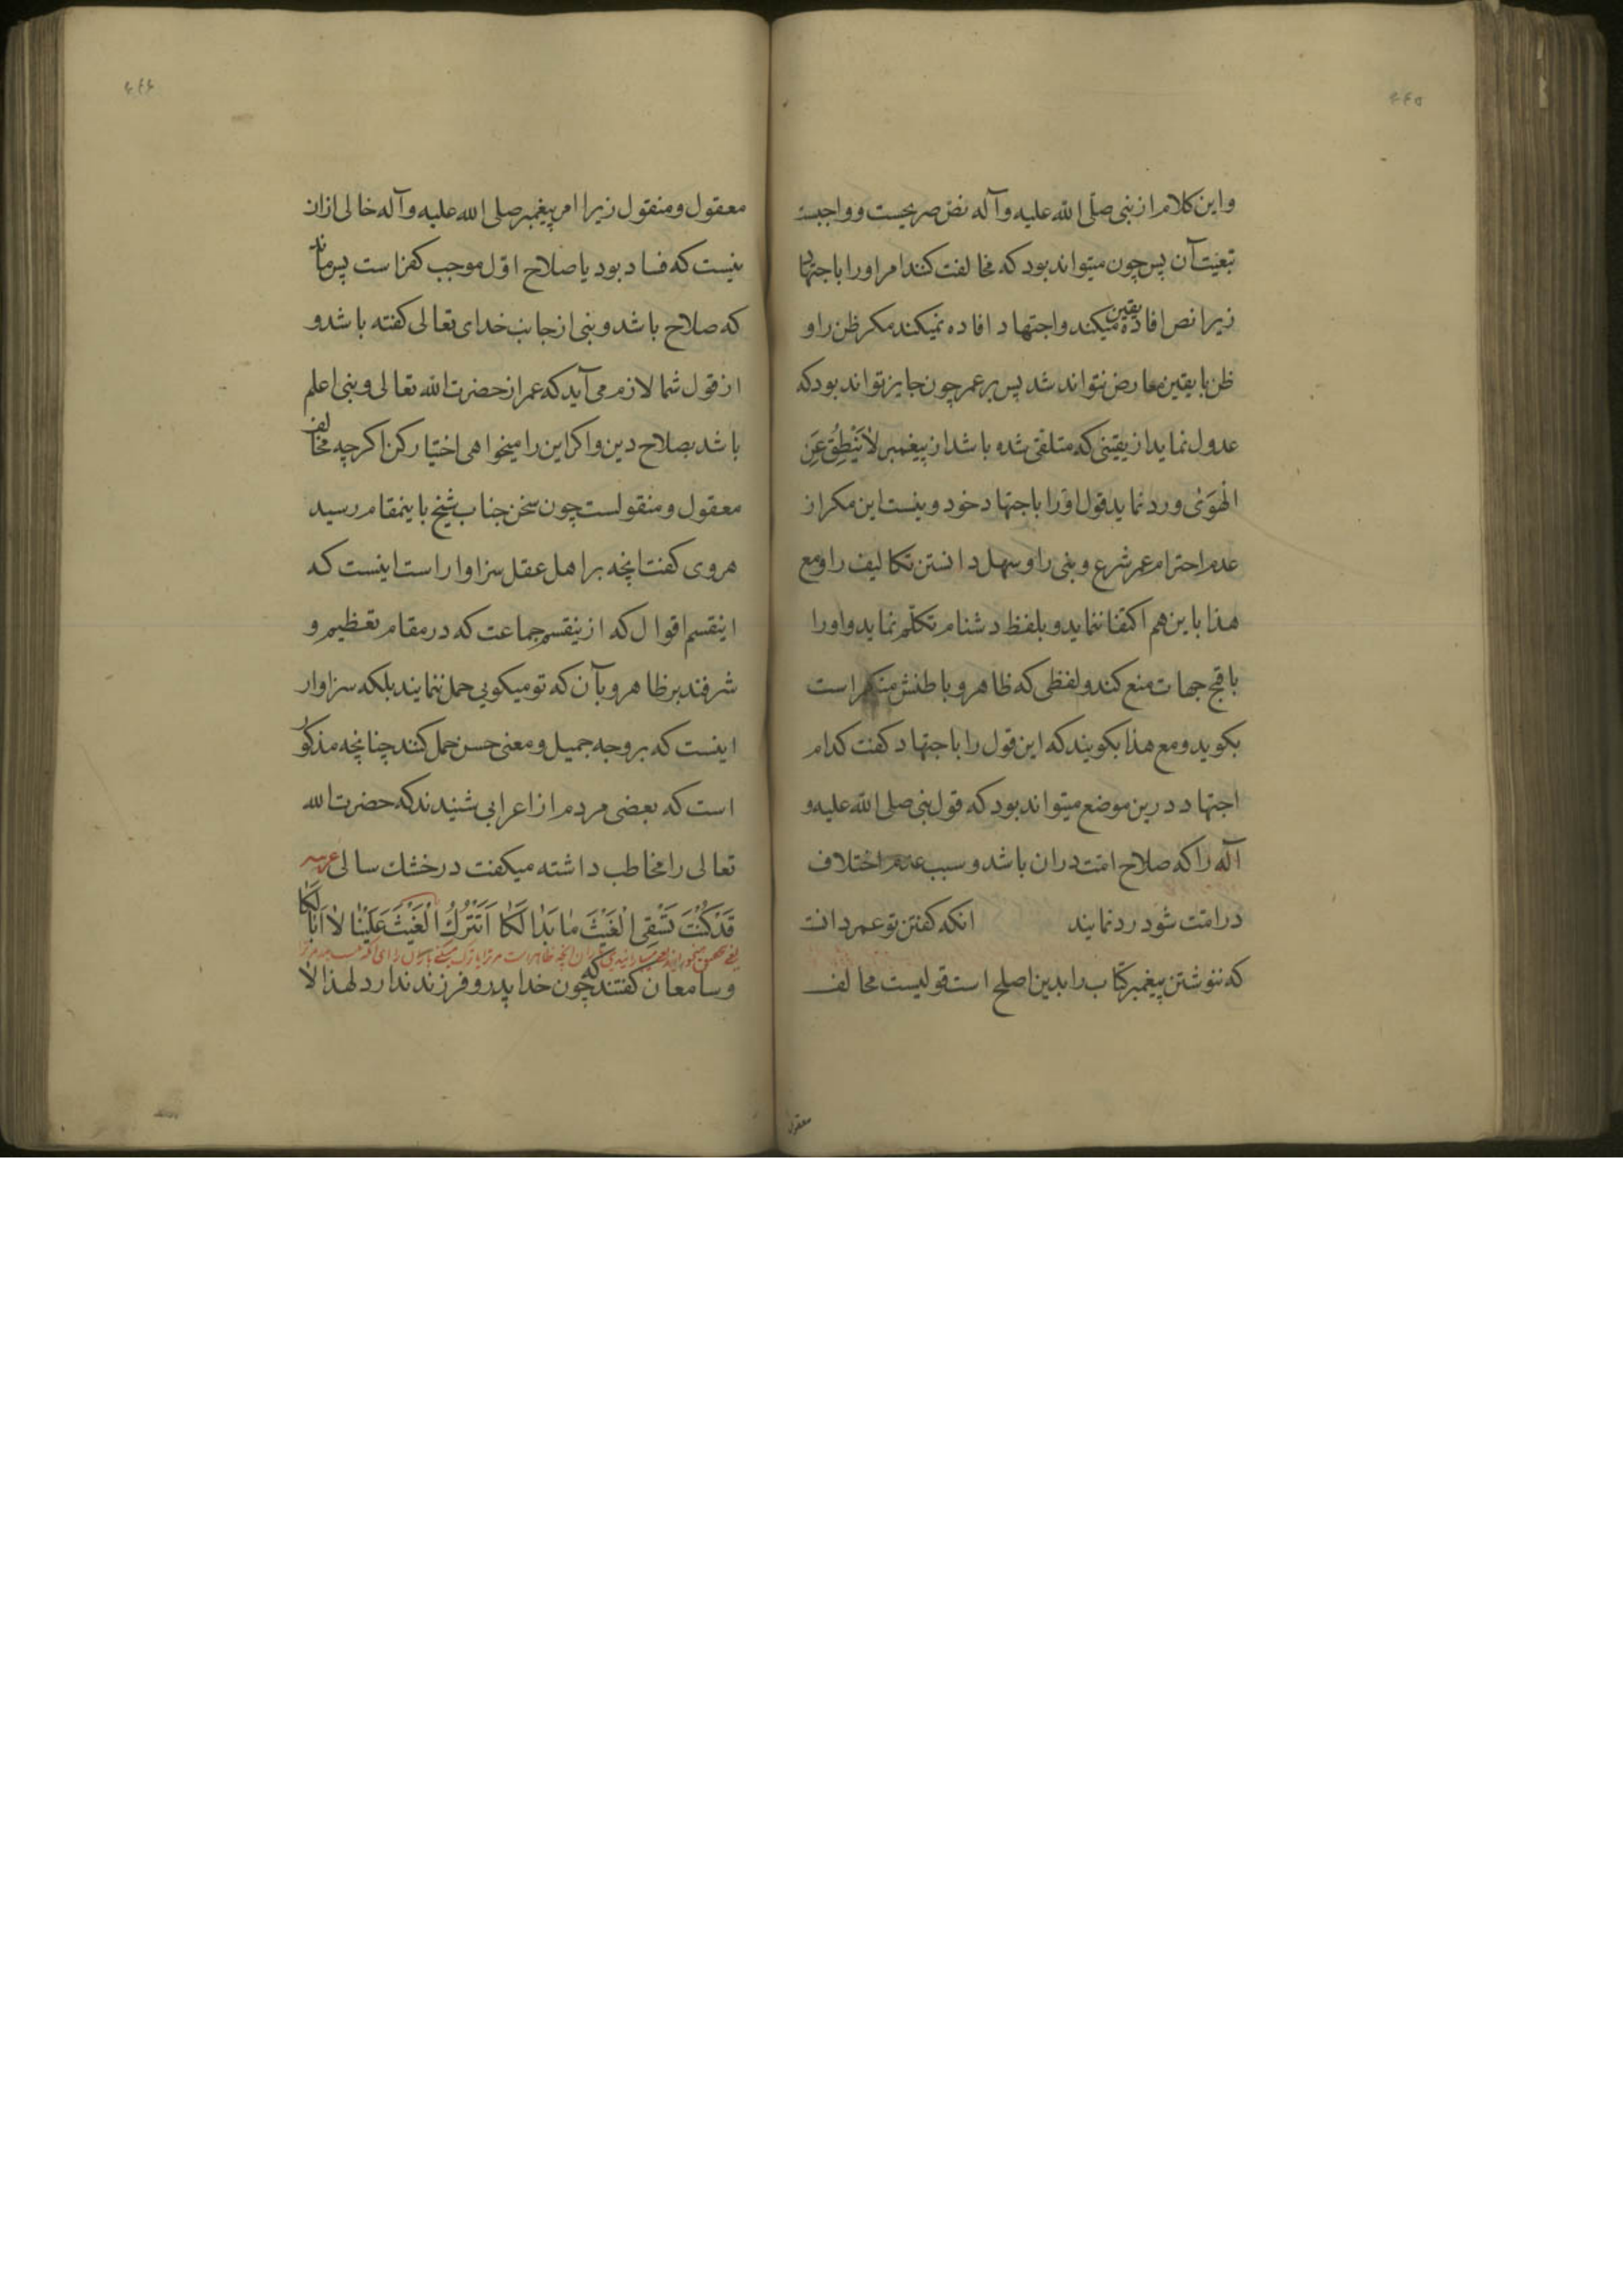 ۴۴۵
واین کلام از نبی صلّی الله علیه وآله نصّ صریحیست وواجبست
تبعیّت آن پس چون میتواند بود که مخالفت کنند امر اورا باجتهاد
زیرا نص افاده یقین میکند واجتهاد افاده نمیکند مکر ظن را و
ظن با یقین معارض نتواند شد پس بر عمر چون جایز تواند بود که
عدول نماید از یقینی که متلقی شده باشد از پیغمبر لاٰ یَنْطِقُ عَنِ
الْهَوَیٰ ورد نماید قول اورا باجتهاد خود ونیست این مکر از
عدم احترام عمر شرع ونبی را وسهل دانستن تکالیف را ومع
هذا باین هم اکتفا ننماید و بلفظ دشنام تکلّم نماید واورا
باقبح جهات منع کند ولفظی که ظاهر وباطنش منکر است
بکوید ومع هذا بکویند که این قول را باجتهاد کفت کدام
اجتهاد درین موضع میتواند بود که قول نبی صلی الله علیه و
آله را که صلاح امّت دران باشد وسبب عدم اختلاف
در امّت شود رد نمایند انکه کفتن تو عمر دانست
که ننوشتن پیغمبر کتاب را بدین اصلح است قولیست مخالف
معقول
۴۴۶
معقول ومنقول زیرا امر پیغمبر صلی الله علیه وآله خالی ازان
نیست که فساد بود یا صلاح اوّل موجب کفر است پس ماند
که صلاح باشد ونبی از جانب خدای تعالی کفته باشد و
از قول شما لازم می آید که عمر از حضرت الله تعالی ونبی اعلم
باشد بصلاح دین واکر این را میخواهی اختیار کن اکرچه مخالف
معقول ومنقولست چون سخن جناب شیخ باینمقام رسید
هروی کفت انچه بر اهل عقل سزاوار است اینست که
اینقسم اقوال که ازینقسم جماعت که در مقام تعظیم و
شرفند بر ظاهر وبآن که تو میکویی حمل ننمایند بلکه سزاوار
اینست که بر وجه جمیل ومعنی حسن حمل کنند چنانچه مذکور
است که بعضی مردم از اعرابی شنیدند که حضرت الله
تعالی را مخاطب داشته میکفت در خشک سالی
قَدْ کُنْتَ تَسْقِی الْغَیْثَ مٰا بَدٰا لَکٰا اَتَتْرُكُ الْغَیْثَ عَلَیْنٰا لاٰ اَبٰا لَکٰا
وسامعان کفتند که چون خدا پدر وفرزند ندارد لهذا لا